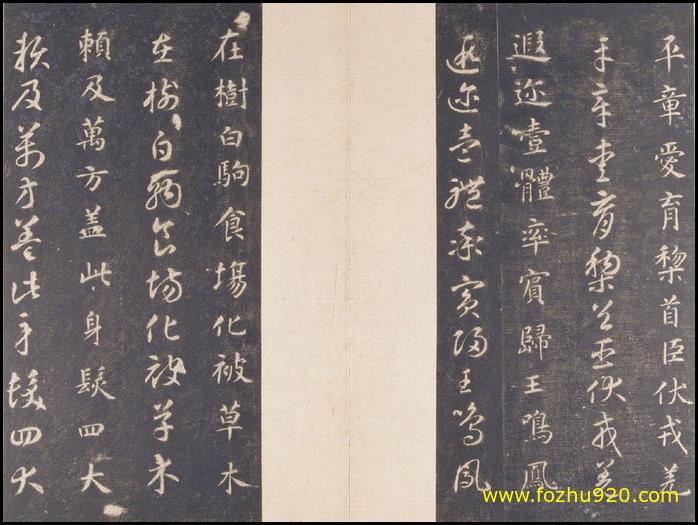 平章愛育黎首臣伏戎羌
平章愛育黎首臣伏戎羌
遐迩壹體率賓歸王鳴鳳
遐迩壹體率賓歸王鳴鳳
在樹白駒食塲化被草木
在樹白駒食場化被草木
賴及萬方盖此身髮四大
賴及萬方蓋此身髮四大
www.fozhu920.com